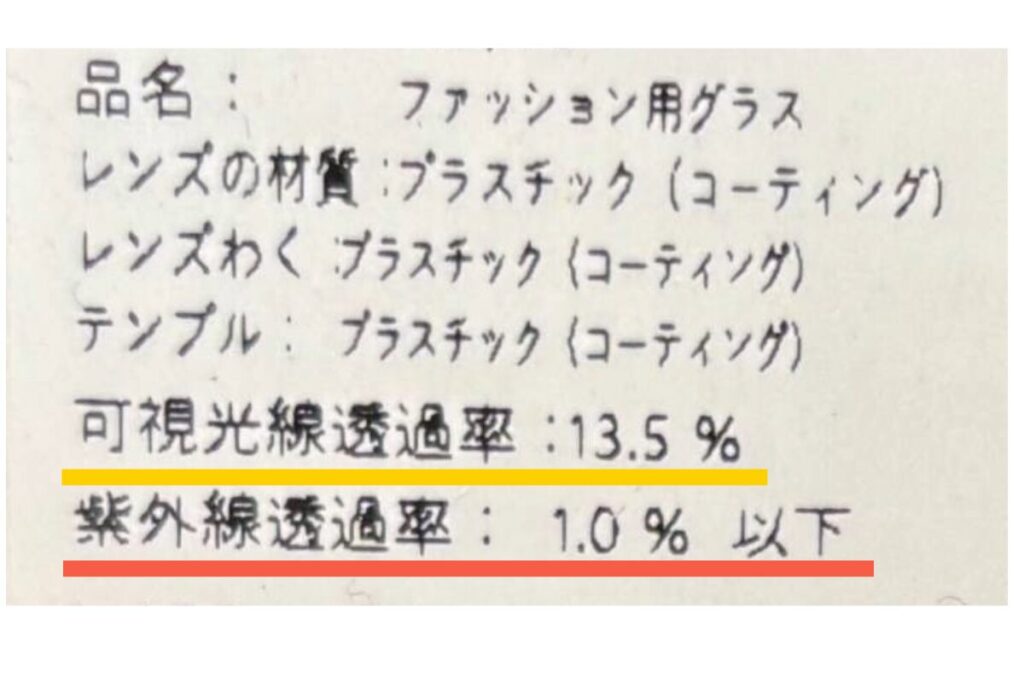 品名： ファッション用グラス
レンズの材質：プラスチック（コーティング）
レンズわく：プラスチック（コーティング）
テンプル： プラスチック（コーティング）
可視光線透過率：13.5 %
紫外線透過率： 1.0 % 以下